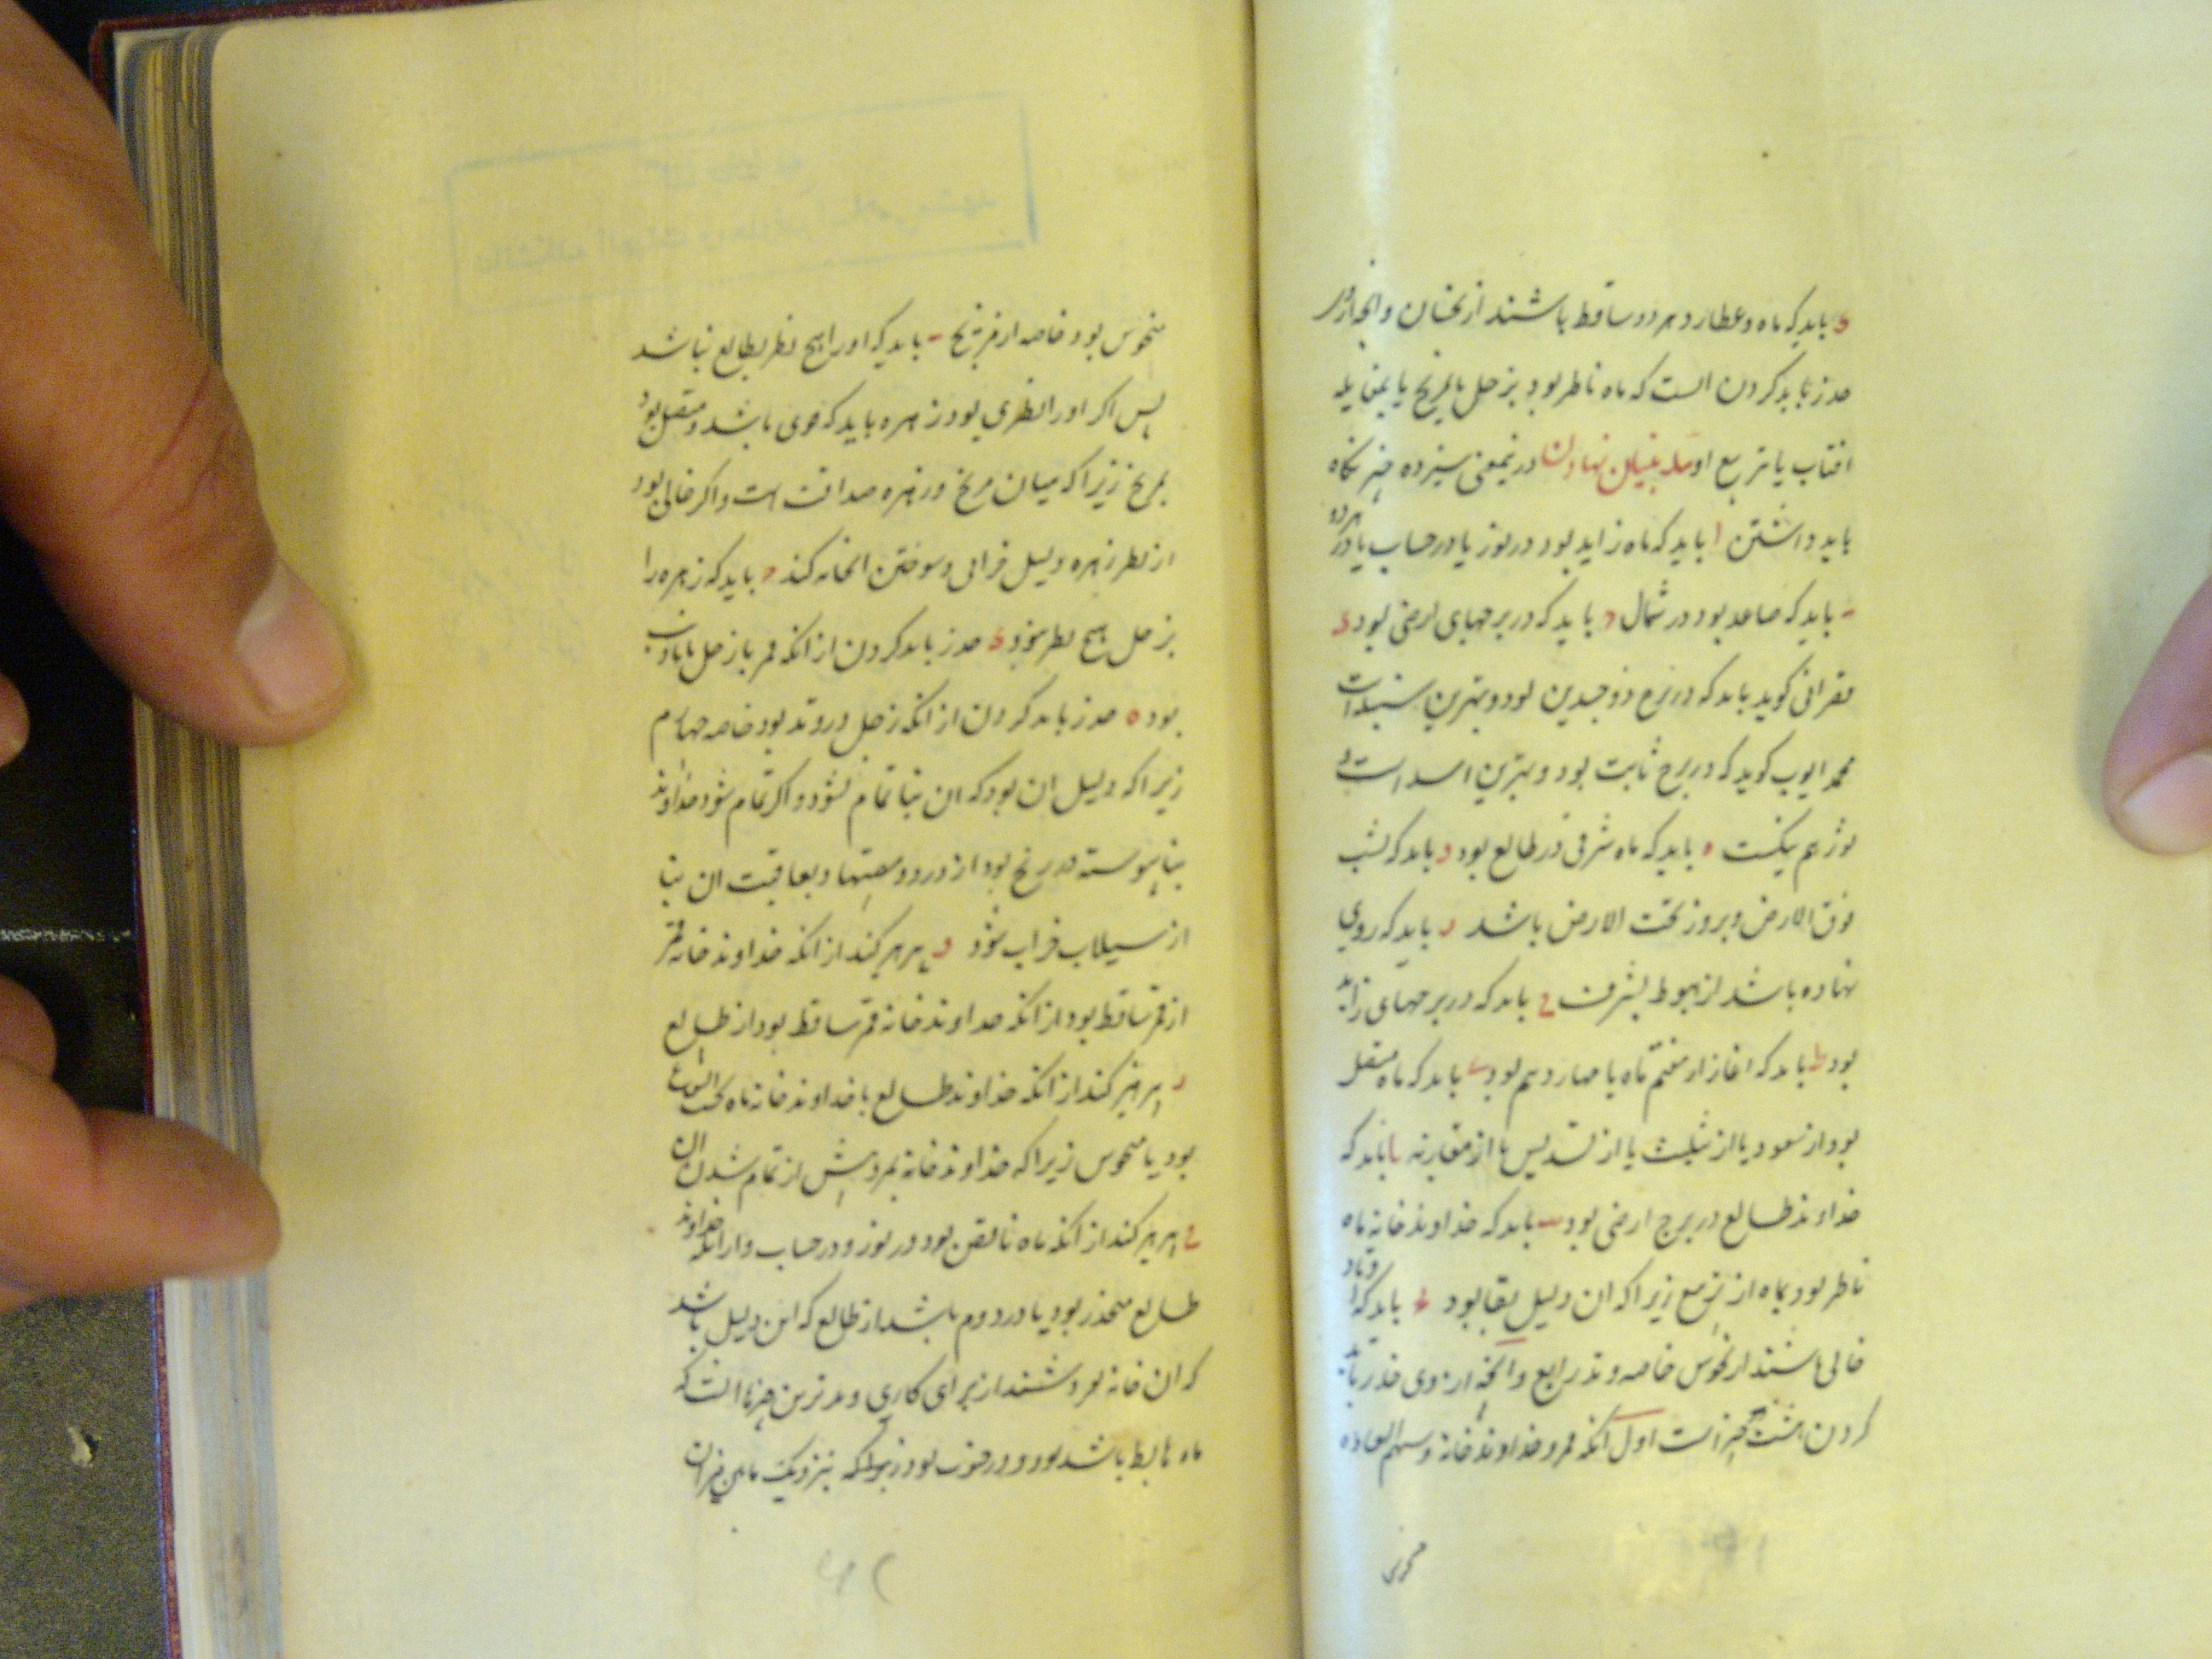 د باید که ماه و عطارد هر دو ساقط باشند از نحسان و انچه ازو
حذر باید کردن انست که ماه ناظر بود بزحل یا بمریخ یا بمقابله
افتاب یا تربیع او بنیان نهادن درینمعنی سیزده چیز نکاه
باید داشتن ا باید که ماه زاید بود در نور یا در حساب یا در هر دو
ب باید که صاعد بود در شمال ج باید که در برجهای ارضی بود د
کوید باید که در برج ذوجسدین بود و بهترین سنبله است
محمد ایوب کوید که در برج ثابت بود و بهترین اسد است و
ثور هم نیکست ه باید که ماه شرقی در طالع بود و باید که بشب
فوق الارض و بروز تحت الارض باشد ز باید که روی
نهاده باشد از هبوط بشرف ح باید که در برجهای زاید
بود ط باید که اغاز از هفتم ماه یا چهاردهم بود ی باید که ماه متصل
بود از سعود یا از تثلیث یا از تسدیس یا از مقارنه یا باید که
خداوند طالع در برج ارضی بود یب باید که خداوند خانه ماه
ناظر بود بماه از تربیع زیرا که ان دلیل بقا بود یج باید که اوتاد
خالی باشند از نحوس خاصه وتد رابع و انچه از وی حذر باید
کردن هشت چیز است اول انکه قمر و خداوند خانه و سهم السعاده
منحوس بود خاصه از مریخ ب باید که او را هیچ نظر بطالع نباشد
پس اکر او را نظری بود زهره باید که قوی باشد و متصل بود
بمریخ زیرا که میان مریخ و زهره صداقت است و اکر خالی بود
از نظر زهره دلیل خرابی و سوختن انخانه کند ج باید که زهره را
بزحل هیچ نظر نبود د حذر باید کردن از انکه قمر با زحل یا با ذنب
بود ه حذر باید کردن از انکه زحل در وتد بود خاصه چهارم
زیرا که دلیل ان بود که ان بنا تمام نشود و اکر تمام شود خداوند
بنا پیوسته در رنج بود از درد و مصیبتها و بعاقبت ان بنا
از سیلاب خراب شود و پرهیز کند از انکه خداوند خانه قمر
از قمر ساقط بود از انکه خداوند خانه قمر ساقط بود از طالع
ز پرهیز کند از انکه خداوند طالع یا خداوند خانه ماه تحت الشعاع
بود یا منحوس زیرا که خداوند خانه بمرد پیش از تمام شدن ان
ح پرهیز کند از انکه ماه ناقص بود در نور و در حساب و از انکه خداوند
طالع منحدر بود یا در دوم باشد از طالع که این دلیل باشد
که ان خانه بفروشند از برای کاری و بدترین چیزها انست که
ماه هابط باشد بود و در جنوب بود زیرا که نزدیک